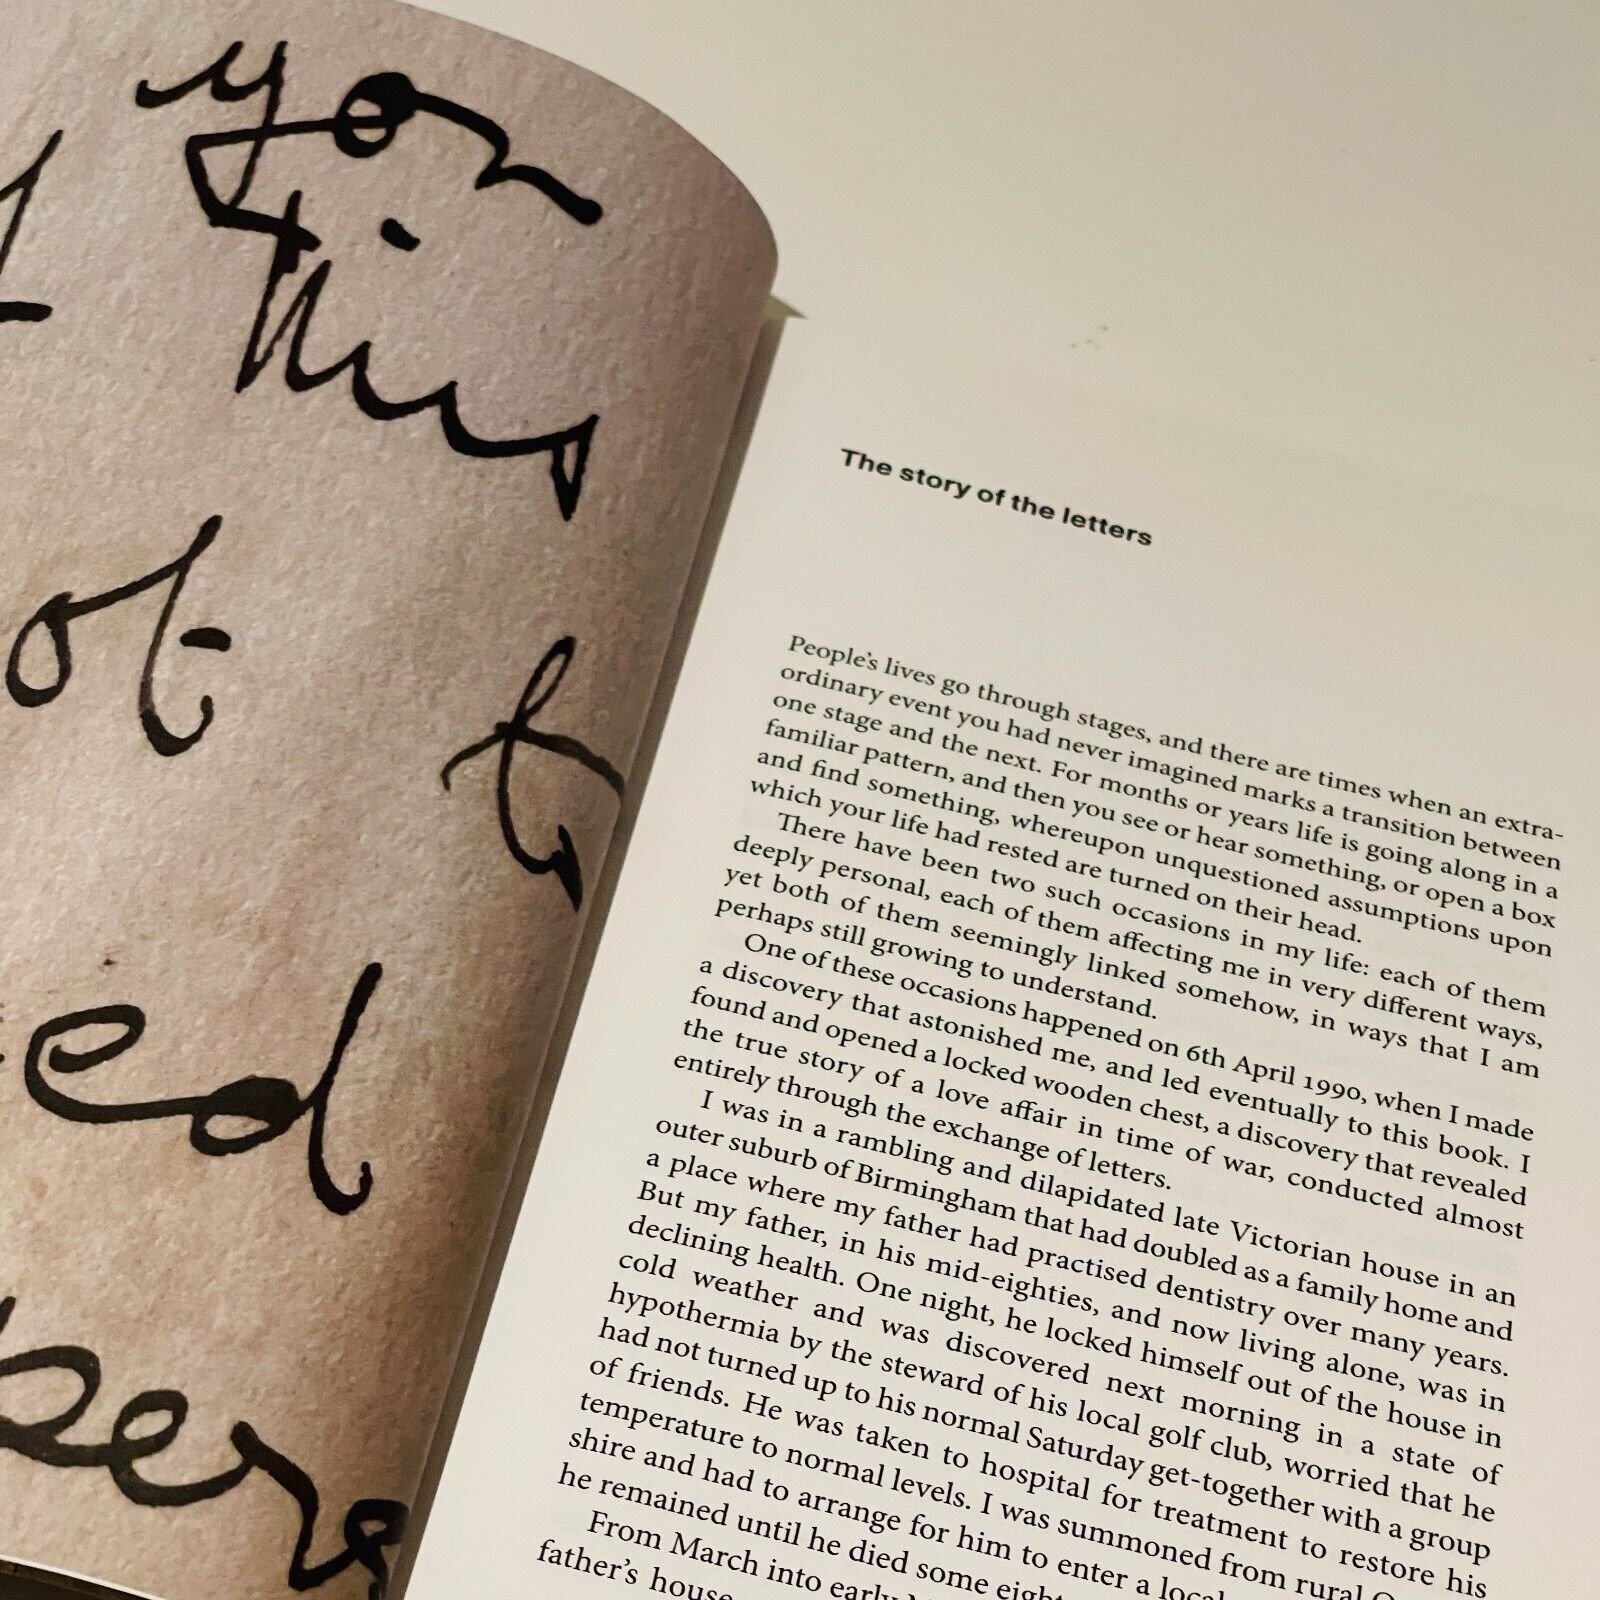 you
this
ot
to
ed
pers
The story of the letters
People's lives go through stages, and there are times when an extra-
ordinary event you had never imagined marks a transition between
one stage and the next. For months or years life is going along in a
familiar pattern, and then you see or hear something, or open a box
and find something, whereupon unquestioned assumptions upon
which your life had rested are turned on their head.
There have been two such occasions in my life: each of them
deeply personal, each of them affecting me in very different ways,
yet both of them seemingly linked somehow, in ways that I am
perhaps still growing to understand.
One of these occasions happened on 6th April 1990, when I made
a discovery that astonished me, and led eventually to this book. I
found and opened a locked wooden chest, a discovery that revealed
the true story of a love affair in time of war, conducted almost
entirely through the exchange of letters.
I was in a rambling and dilapidated late Victorian house in an
outer suburb of Birmingham that had doubled as a family home and
a place where my father had practised dentistry over many years.
But my father, in his mid-eighties, and now living alone, was in
declining health. One night, he locked himself out of the house in
cold weather and was discovered next morning in a state of
hypothermia by the steward of his local golf club, worried that he
had not turned up to his normal Saturday get-together with a group
of friends. He was taken to hospital for treatment to restore his
temperature to normal levels. I was summoned from rural
shire and had to arrange for him to enter a local
he remained until he died some eight
From March into early
father's house